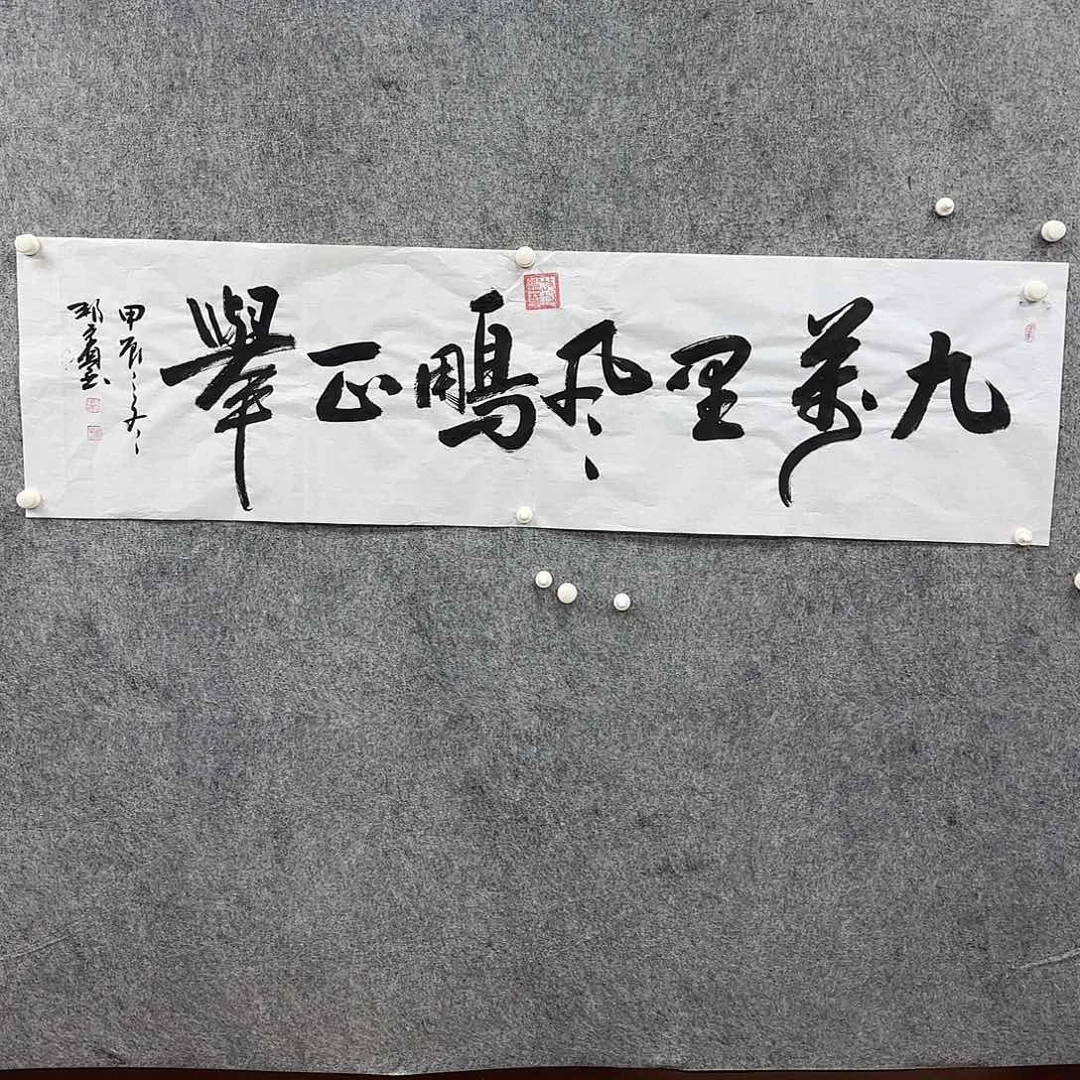 九萬里風鵬正舉
甲辰之冬